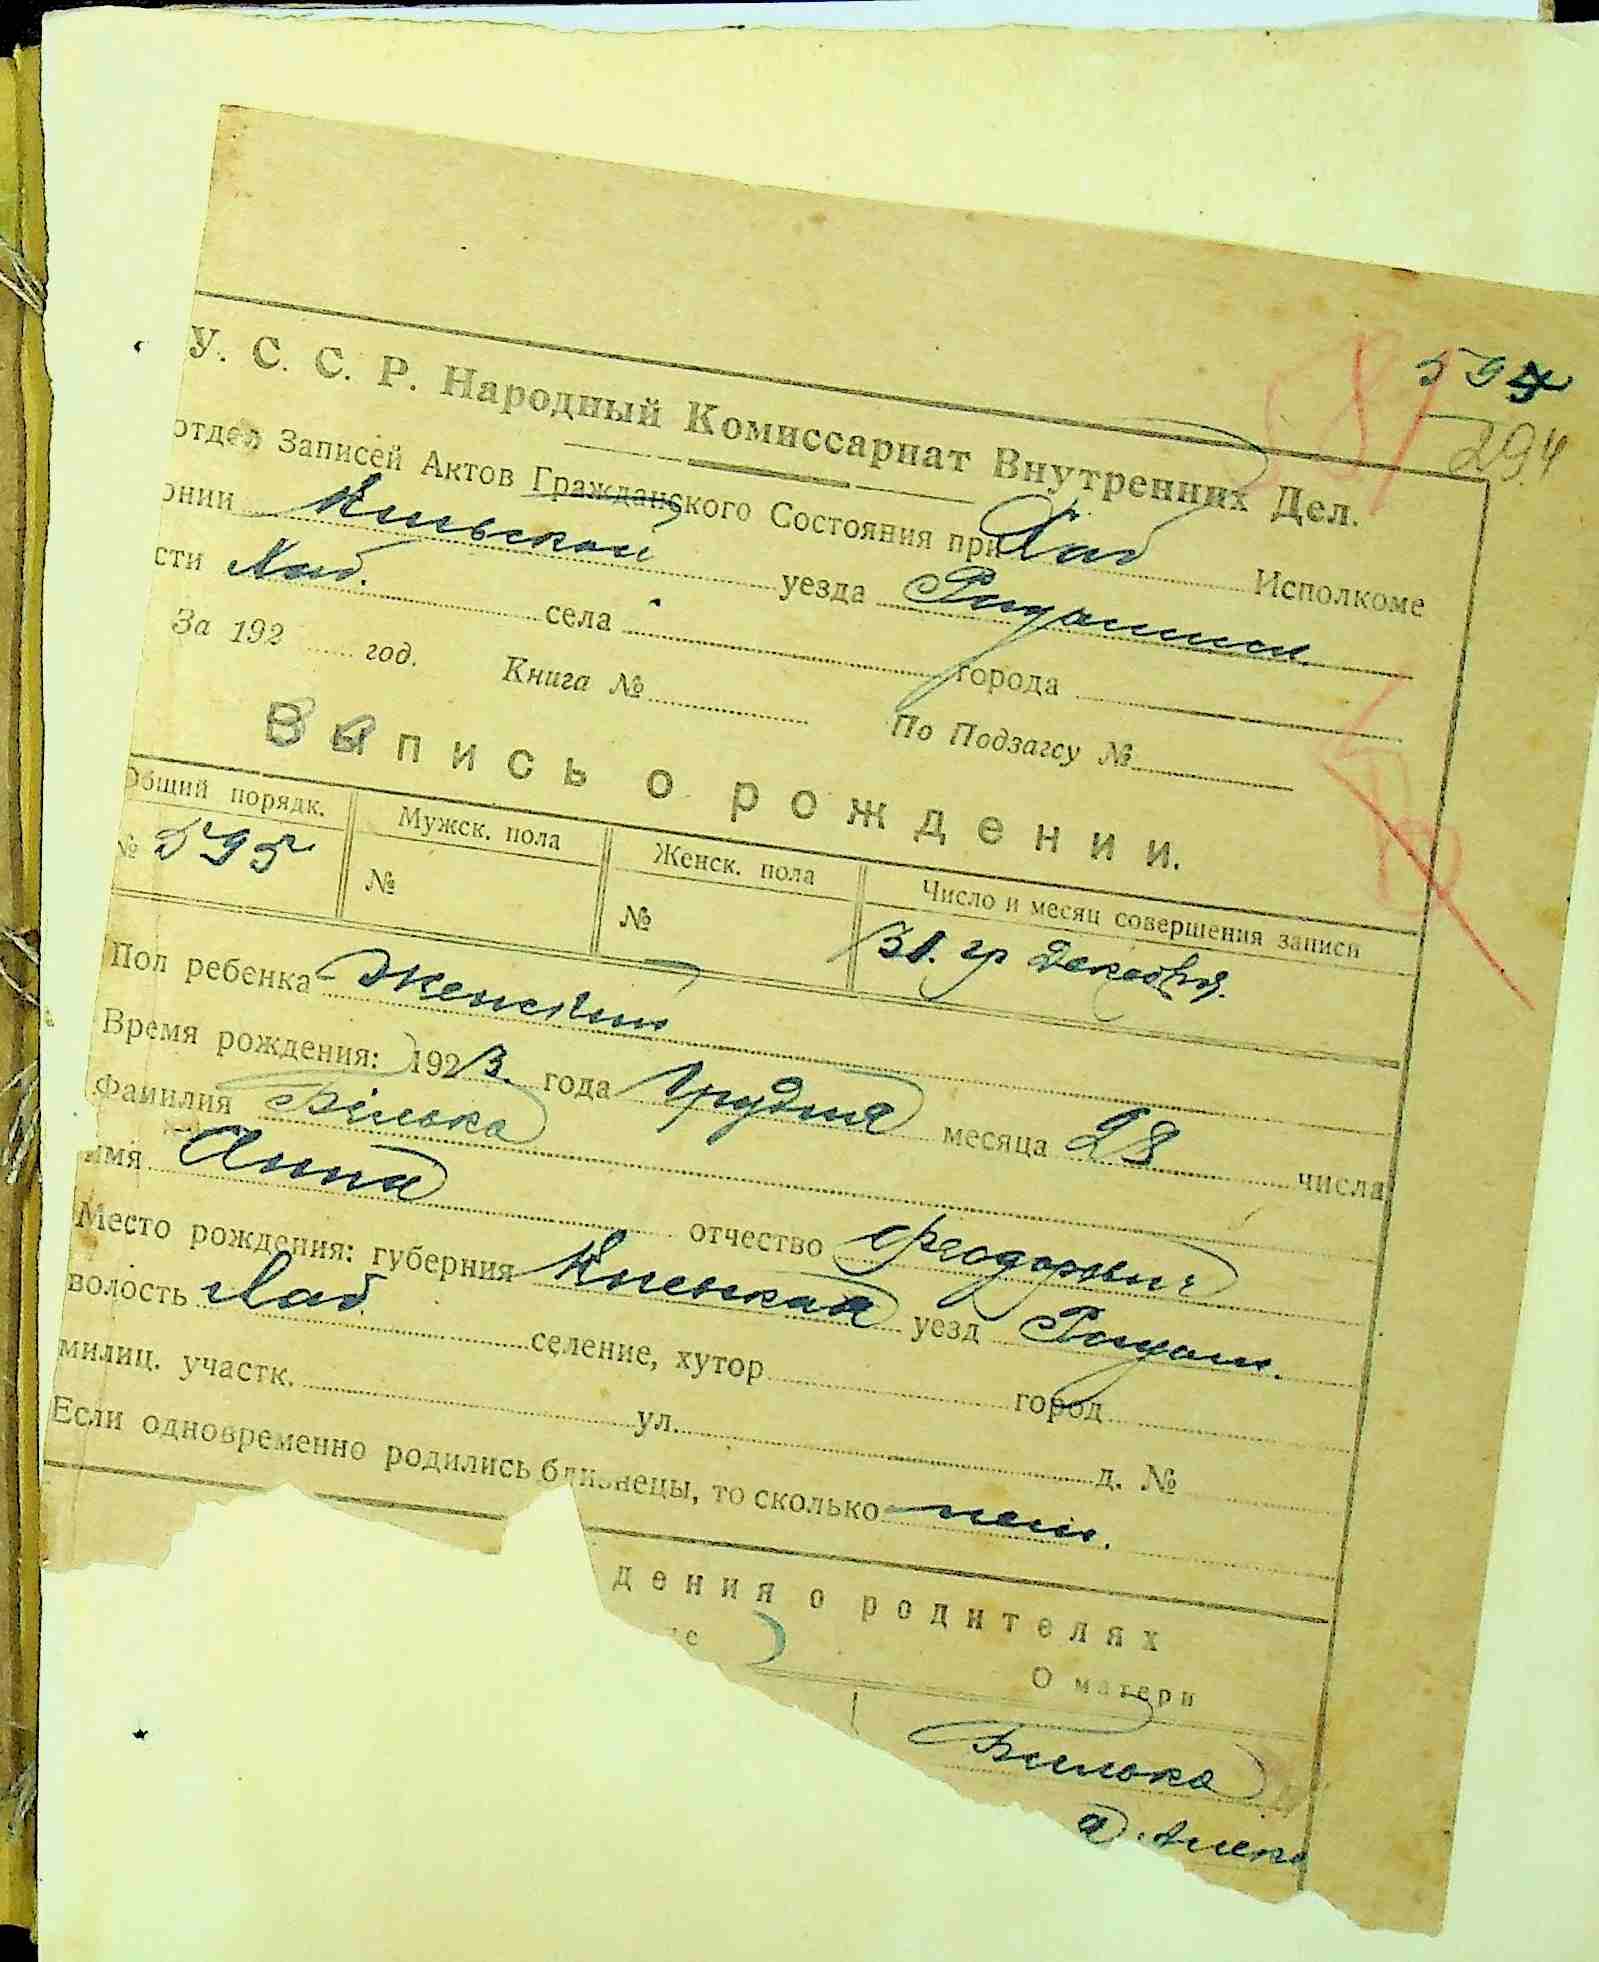 595
581
294
У. С. С. Р. Народный Комиссариат Внутренних Дел.
отдел Записей Актов Гражданского Состояния при Хаб Исполкоме
рнии Киевской уезда
сти Хаб. села города
За 192 год. Книга № По Подзагсу №
Выпись о рождении.
Общий порядк. Мужск. пола Женск. пола Число и месяц совершения записи
№ 595 № № 30. гр Декабря.
Пол ребенка женский
Время рождения: 1923. года Грудня месяца 28 числа
Фамилия Білько
имя Анна отчество Феодорович
Место рождения: губерния Киевская уезд
волость Хаб. селение, хутор город
милиц. участк. ул. д. №
Если одновременно родились близнецы, то сколько
дения о родителях
це О матери
Билько